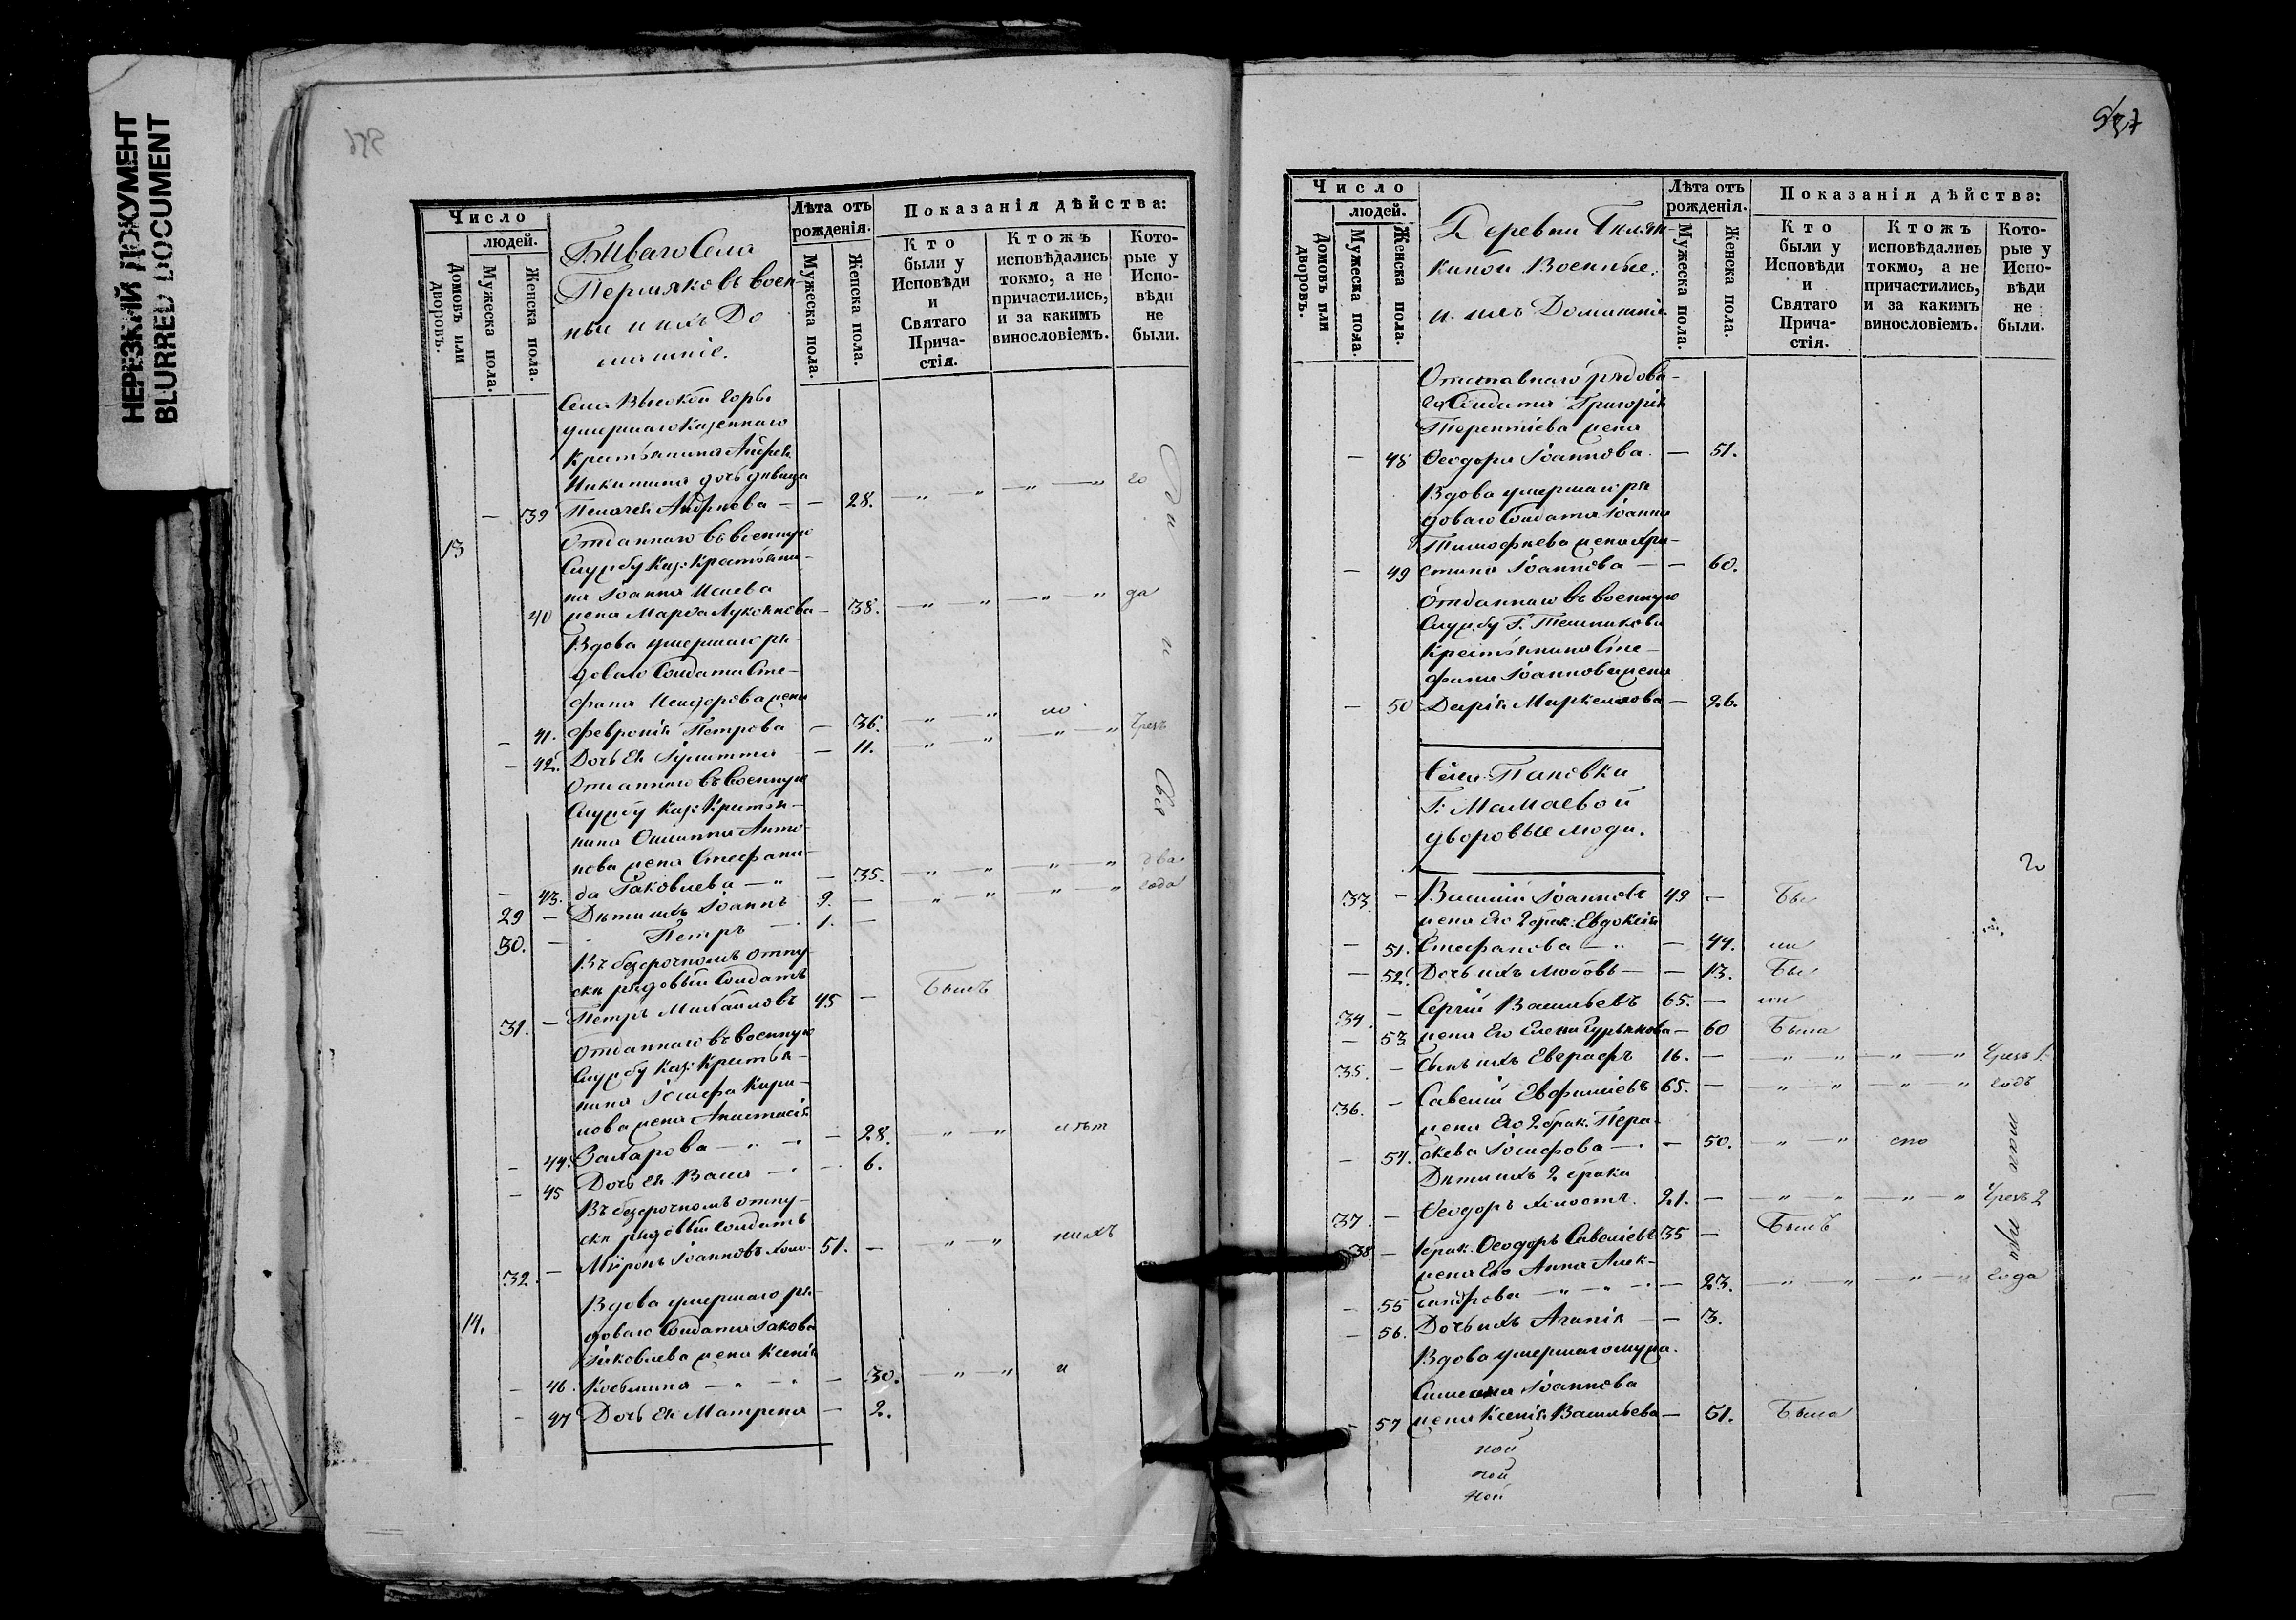 НЕРЕЗКИЙ ДОКУМЕНТ
BLURRED DOCUMENT
Число
людей.
Домовъ или дворовъ.
Мужеска пола.
Женска пола.
Села
Пермяковъ воен-
ные и ихъ До
машніе.
Лѣта отъ рожденія.
Мужеска пола.
Женска пола.
Показанія дѣйства:
Кто были у Исповѣди и Святаго Прича-стія.
Ктожъ исповѣдались токмо, а не причастились, и за какимъ винословіемъ.
Кото-рые у Испо-вѣди не были.
Села Высокой Горы
умершаго Казеннаго
Крестьянина Андрея
Никитина дочь дѣвица
— 39 Пелагея Андреева — — 28. го
13 Отданнаго въ военную
Службу Каз: Крестьяни-
на Іоанна Исаева
40 жена Марѳа Лукоянова — 38. да
Вдова умершаго ря-
доваго Солдата Сте-
фана Исидорова жена
— 41. Февронія Петрова — 36.
— 42. Дочь Ея Іулитта — 11. Чрезъ
Отданнаго въ Военную
Службу Каз: Крестья-
нина Филиппа Анто-
нова жена Стефани-
— 43. да Іаковлева — 35. два
29 — Дѣти ихъ Іоаннъ 9. — года
30. — Петръ — 1. —
Въ безсрочномъ отпу-
ску рядовый Солдатъ
31. — Петръ Михайловъ 45 — Былъ
Отданнаго въ военную
Службу Каз: Крестья-
нина Іосифа Кири-
лова жена Анастасія
— 44. Захарова — 28.
— 45 Дочь Ея Васса — 6.
Въ безсрочномъ отпу-
ску рядовый Солдатъ
32. — Миронъ Іоанновъ холо- 51. —
14. Вдова умершаго ря-
доваго Солдата Іакова
Іаковлева жена Ксенія
— 46. Козьмина — 30. и
— 47 Дочь Ея Матрена — 2.
537
Число
людей.
Домовъ или дворовъ.
Мужеска пола.
Женска пола.
Деревни
Военные
и ихъ Домашніе.
Лѣта отъ рожденія.
Мужеска пола.
Женска пола.
Показанія дѣйства:
Кто были у Исповѣди и Святаго Прича-стія.
Ктожъ исповѣдались токмо, а не причастились, и за какимъ винословіемъ.
Кото-рые у Испо-вѣди не были.
Отставнаго рядова-
го Солдата Григорія
Терентіева жена
— 48 Ѳеодора Іоаннова — 51.
Вдова умершаго ря
доваго Солдата Іоанна
Тимофеева жена Хри-
— 49 стина Іоаннова — — 60.
Отданнаго въ военную
Службу Г.
Крестьянина Сте-
фана Іоаннова жена
— 50 Дарія Маркеллова — 26.
Села Пановки
Г: Мамаевой
дворовые люди.
33. — Василій Іоанновъ 49 — Бы
жена Его 2 брак: Евдокія
— 51. Стефанова — 44. ли
— 52. Дочь ихъ Любовь — — 13. Бы
34. — Сергій Васильевъ 65. — ли
— 53 жена Его Елена Гурьянова — 60 Была
35. — Сынъ ихъ Евграфъ 16. — Чрезъ 1.
36. — Савелій Евфиміевъ 65. — годъ
жена Его 2 брак. Пара-
— 54. скева Іосифова — — 50.
Дѣти ихъ 2 брака
37. — Ѳеодоръ холостъ. 21. — Чрезъ 2
38 — 1 брак. Ѳеодоръ Савеліевъ 35 — Былъ
жена Его Анна Алек-
— 55 сандрова — 23. года
— 56. Дочь ихъ Агапія — — 3.
Вдова умершаго мужа
Симеона Іоаннова
— 57 жена Ксенія Васильева — 51. Была
ной
ной
ной